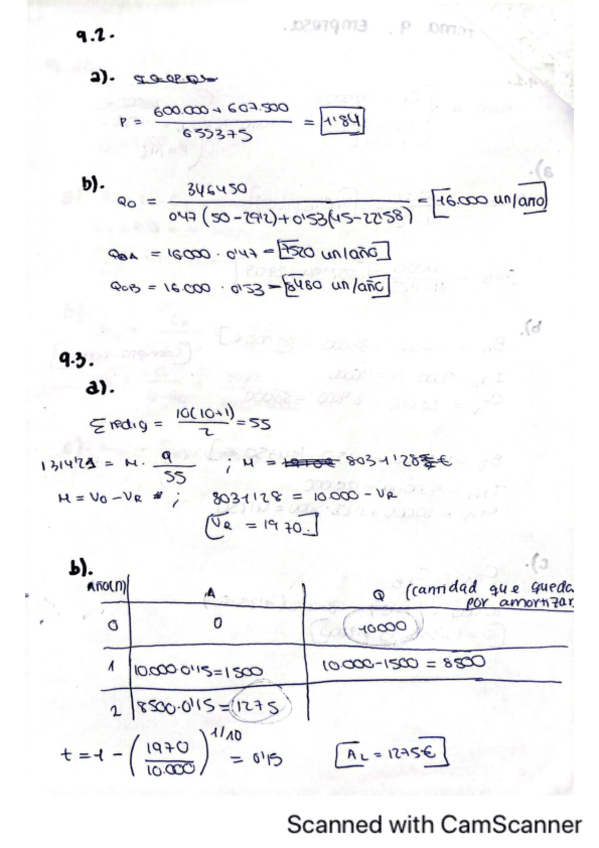 9.2.
a).
P = (600.000 + 607.500) / 655375 = 1'84
b).
Q0 = 346450 / (0'47 (50-29'12) + 0'53(45-22'58)) = 16.000 un/año
Q0A = 16000 · 0'47 = 7520 un/año
Q0B = 16.000 · 0'53 = 8480 un/año
9.3.
a).
Σ redig = 10(10+1) / 2 = 55
= M · 9/55 ; M = €
M = V0 - VR ; = 10.000 - VR
VR = 1970.
b).
Año(n) A Q (cantidad que queda
por amortizar
0 0 10000
1 10.000·0'15=1500 10.000-1500 = 8500
2 8500·0'15=1275
t = 1 - (1970 / 10.000)^1/10 = 0'15 AL = 1275€
Scanned with CamScanner